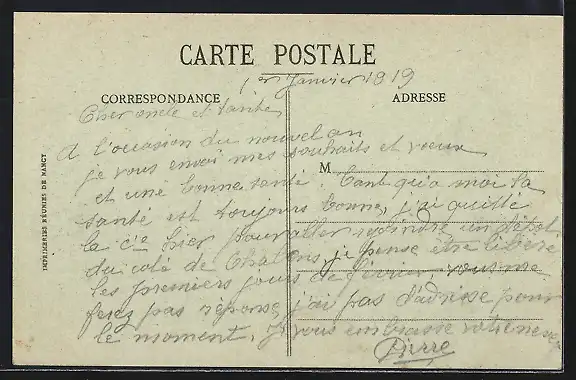 CARTE POSTALE
1er Janvier 1919
CORRESPONDANCE
ADRESSE
Cher oncle et tante,
A l'occasion du nouvel an
je vous envoi mes souhaits et vœux
M
et une bonne santé. Tant qu'a moi la
santé est toujours bonne, j'ai quitté
la Cie hier pour aller rejoindre un dépot
du coté de Chalons, je pense etre libéré
les premiers jours de février, vous me
ferez pas réponse, j'ai pas d'adresse pour
le moment. Je vous embrasse votre neveu
Pierre
IMPRIMERIES RÉUNIES DE NANCY